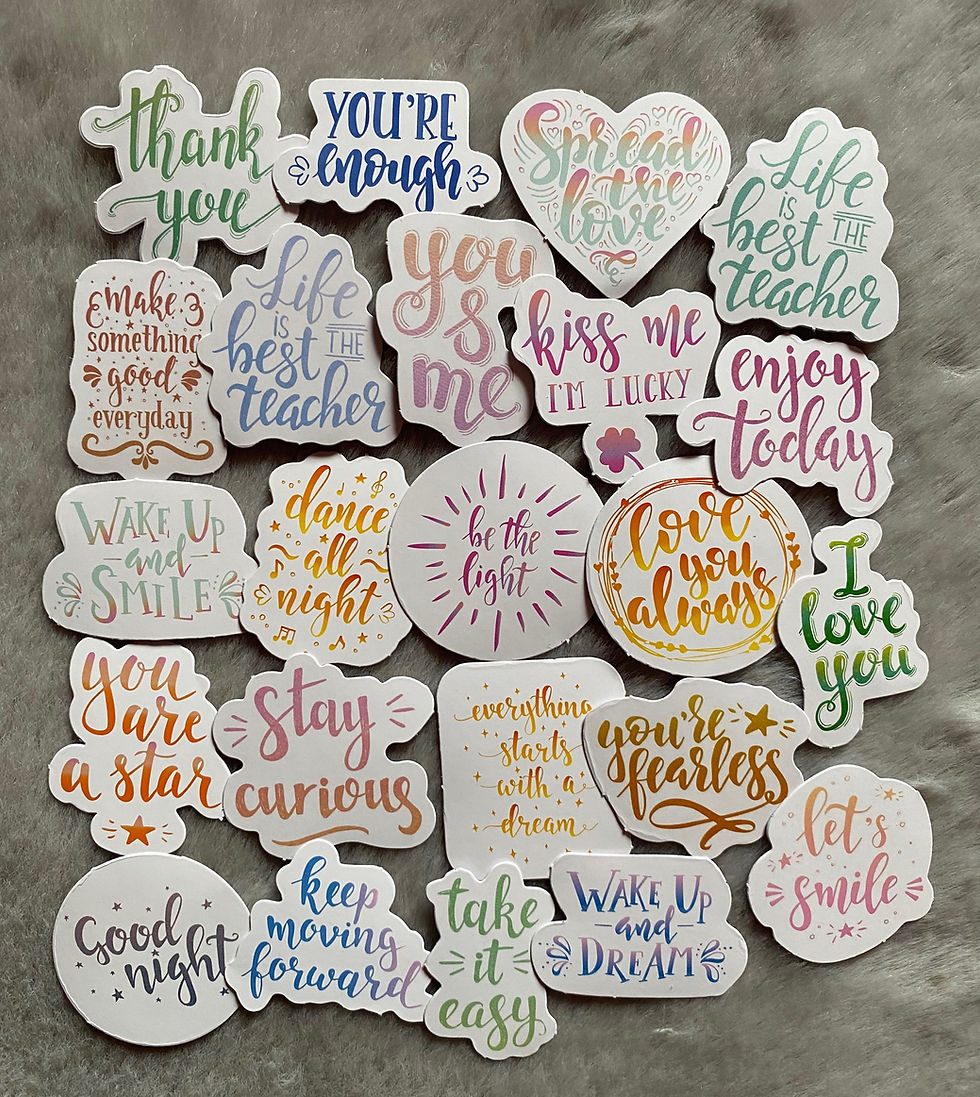 thank
you
YOU'RE
enough
Spread
the
love
Life
IS
best THE
teacher
make
something
good
everyday
Life
IS
best THE
teacher
you
&
me
kiss me
I'M LUCKY
enjoy
today
WAKE UP
and
SMILE
dance
all
night
be the
light
love
you
always
I
love
you
you
are
a star
stay
curious
everything
starts
with a
dream
you're
fearless
let's
smile
Good
night
keep
moving
forward
take
it
easy
WAKE UP
and
DREAM